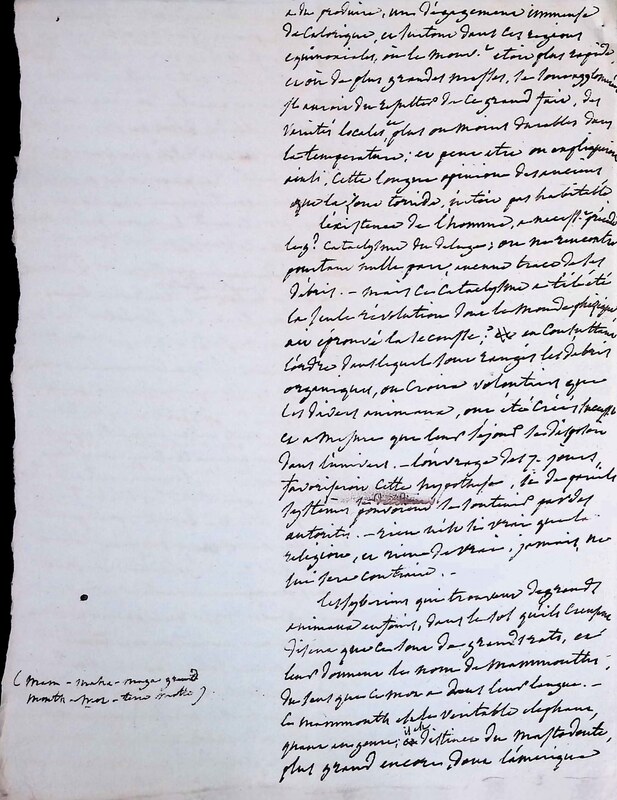 a du produire, un dégagement immense
de calorique, et surtout dans ces regions
equinoxiales, où le mouv.t etoit plus rapide,
et où de plus grandes masses, se sont agglomérées
Il auroit du resulter de ce grand fait, des
varietés locales, et plus ou moins durables dans
la temperature; et peut etre on expliqueroit
ainsi, cette longue opinion des anciens
que la zone torride, n'etoit pas habitable
L'existence de l'homme, a precedé
le gd cataclysme du deluge; on ne rencontre
pourtant nulle part, aucune trace de ses
debris. – mais ce cataclysme a-t-il été
la seule revolution dont le monde physique
ait éprouvé la secousse? en consultant
l'ordre dans lequel sont rangés les debris
organiques, on croira volontiers que
les divers animaux, ont été créés
et a mesure que leur sejour se disposoit
dans l'univers. – l'ouvrage des 7. jours,
favoriseroit cette hypothese, si de pareils
systemes pouvoient se soutenir par des
autorités. – rien n'est si vrai que la
religion, et rien de vrai, jamais, ne
lui sera contraire. –
Les Syberiens qui trouvent de grands
animaux enfouis, dans le sol qu'ils creusent
disent que ce sont de grands rats, et
leur donnent le nom de mammouths,
du sens que ce mot a dans leur langue. –
Le mammouth est le veritable elephant,
quant au genre; il est distinct du mastodonte,
plus grand encore, dont l'amérique
(mam – maha – mega grand
mouth – mor – terre).